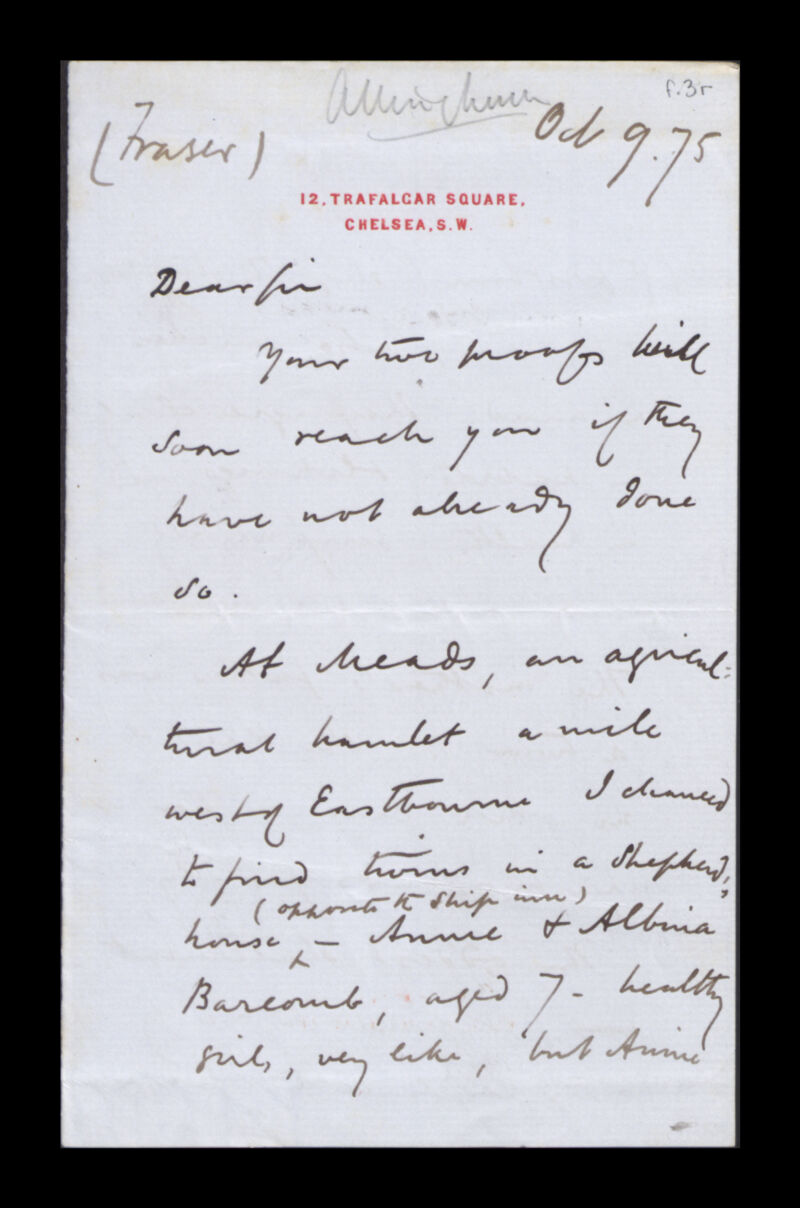 Allingham
f.3r
(Fraser)
Oct 9. 75
12, TRAFALGAR SQUARE,
CHELSEA, S.W.
Dear Sir
Your two proofs will
soon reach you if they
have not already done
so.
At Meads, an agricul-
tural hamlet a mile
west of Eastbourne I chanced
to find twins in a Shepherd's
(opposite the Ship inn)
house – Annie & Albina
Barcomb, aged 7 – healthy
girls, very like, but Annie